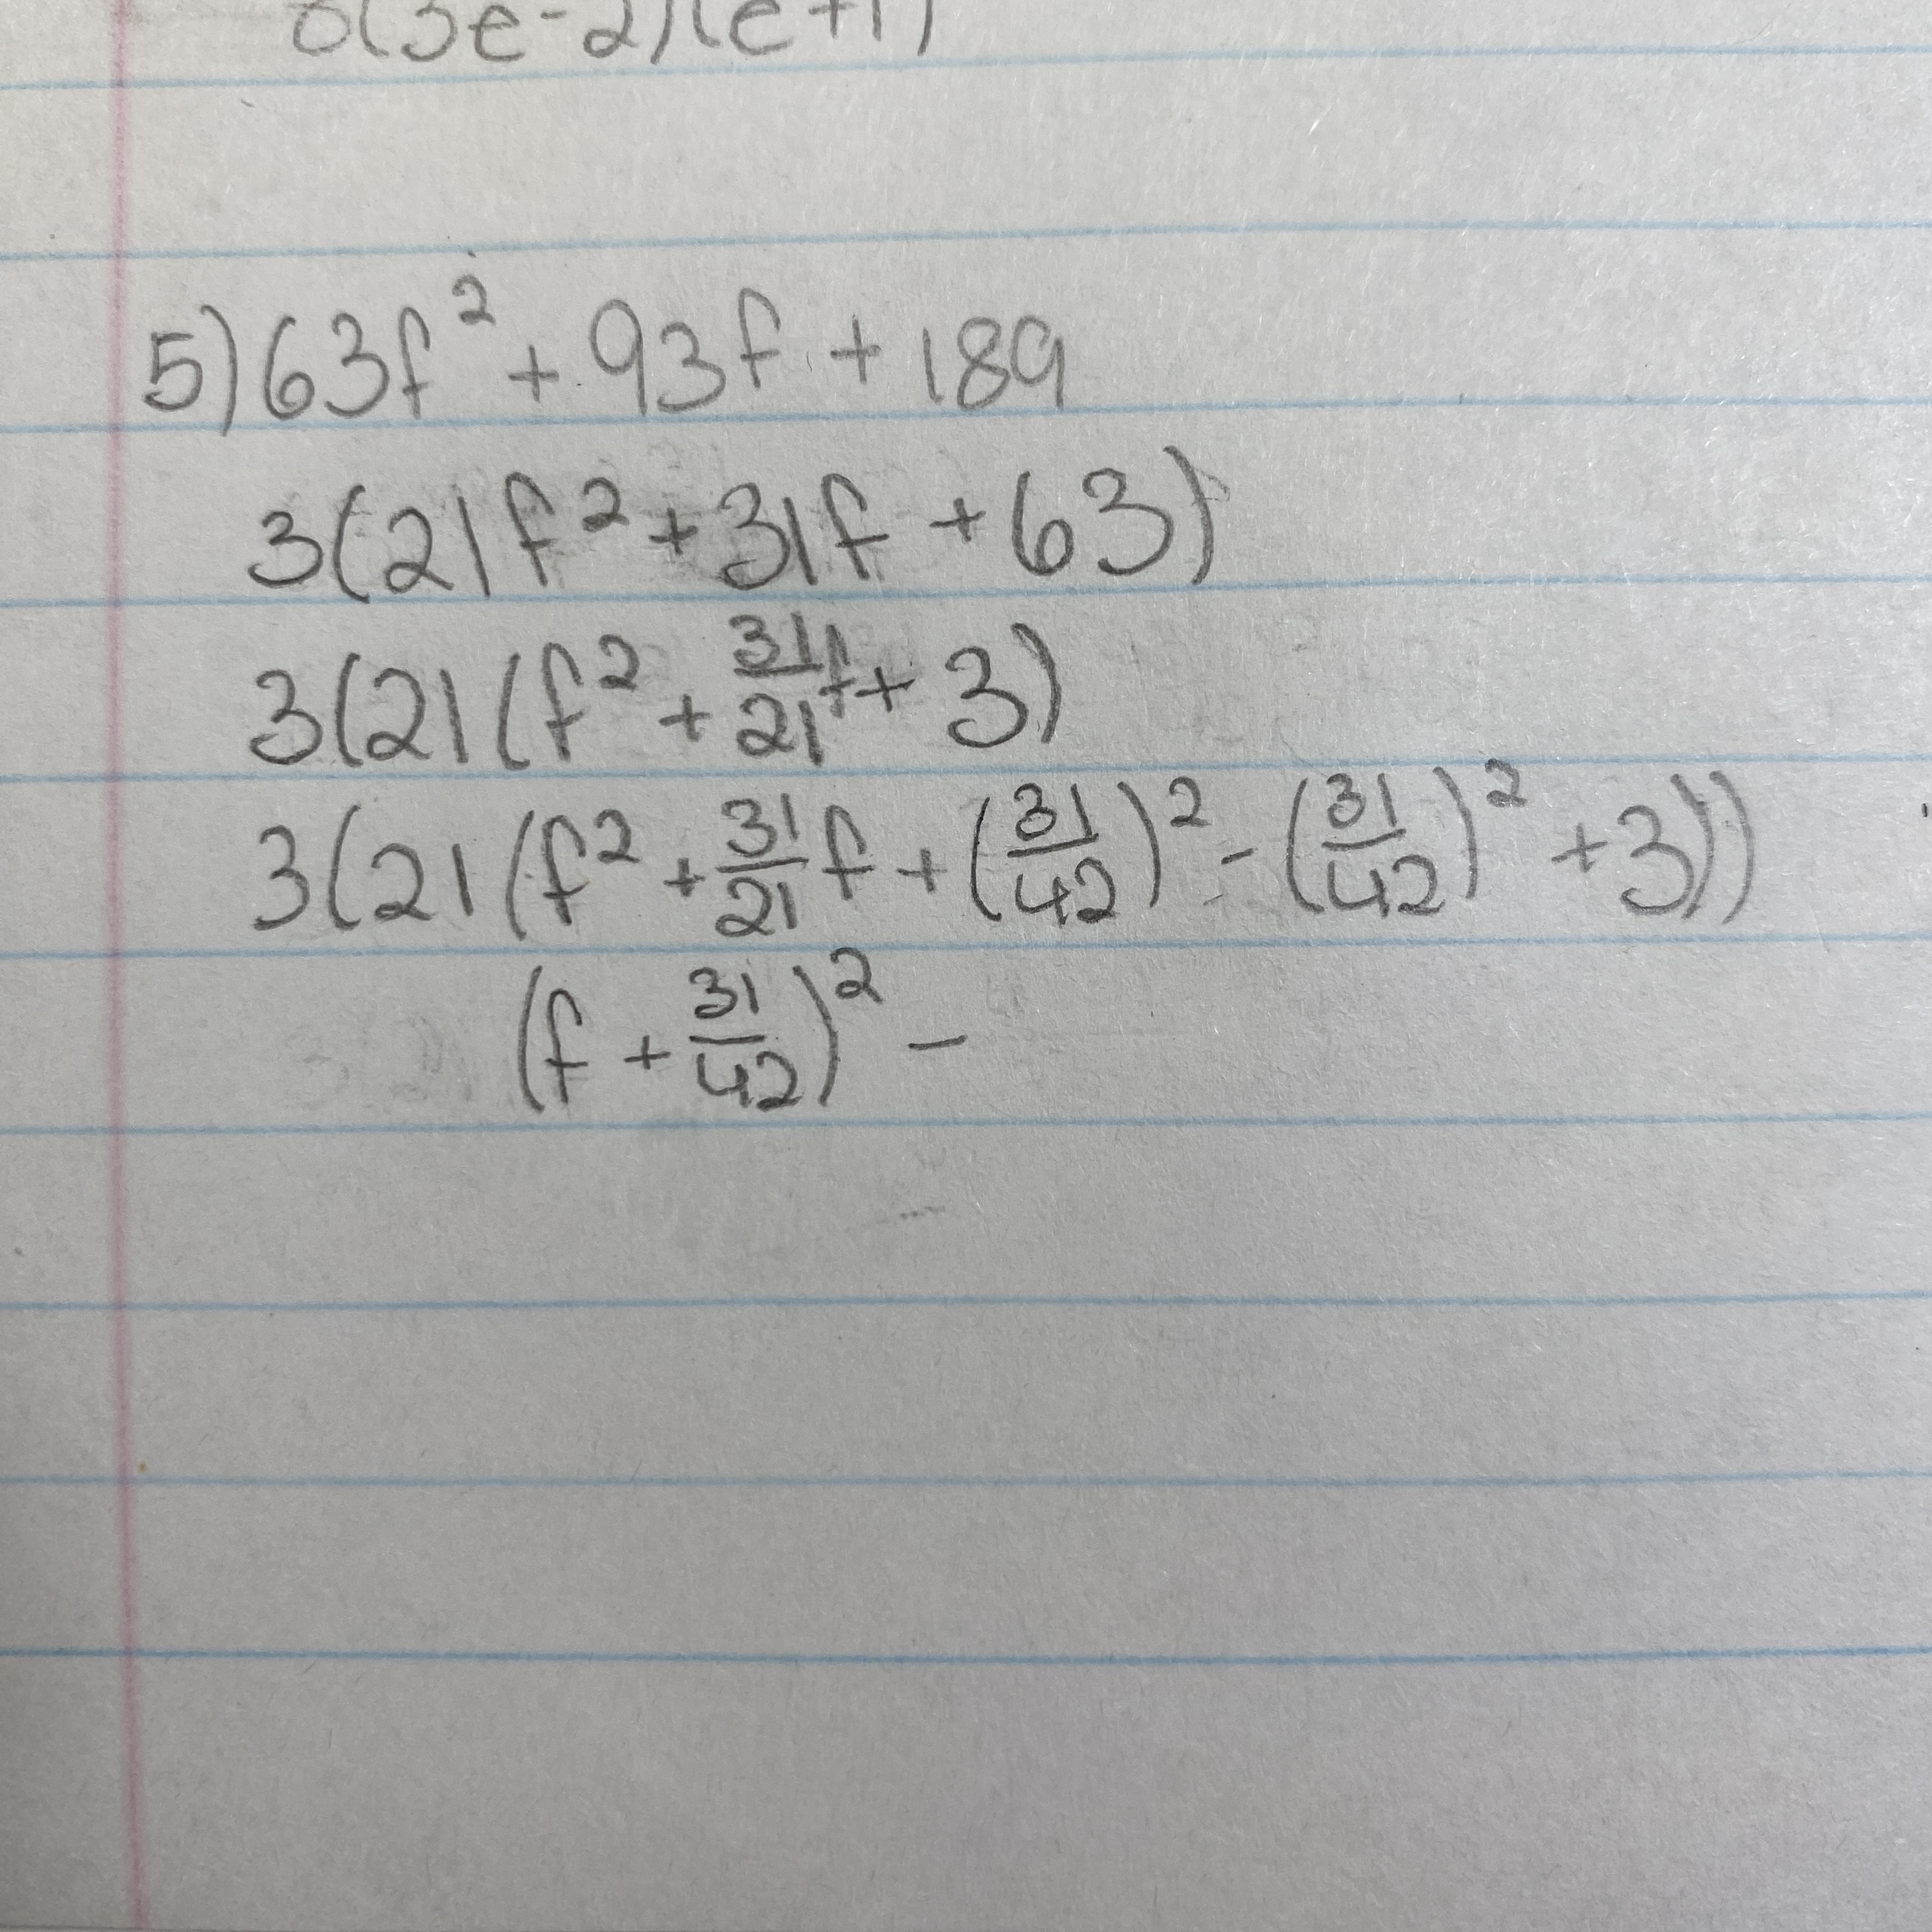 (3e-2)(e+1)
5) 63f² + 93f + 189
3(21f² + 31f + 63)
3(21(f² + 31/21 f + 3)
3(21(f² + 31/21 f + (31/42)² - (31/42)² + 3))
(f + 31/42)² -